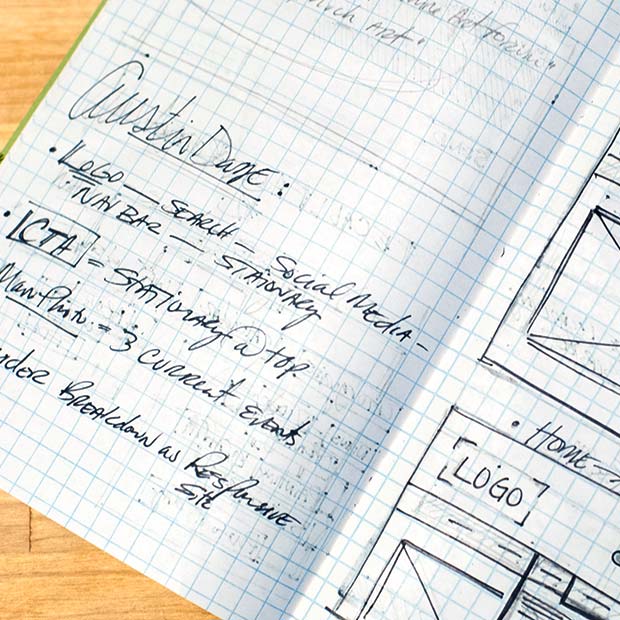 Art Forum"
Art"
Austin Dane:
• LOGO — SEARCH — Social Media —
NAVBAR — STATIONARY
• [CTA] = STATIONARY @ top.
Main Photo = 3 CURRENT EVENTS
BREAKDOWN as RESPONSIVE
SITE
• HOME
LOGO